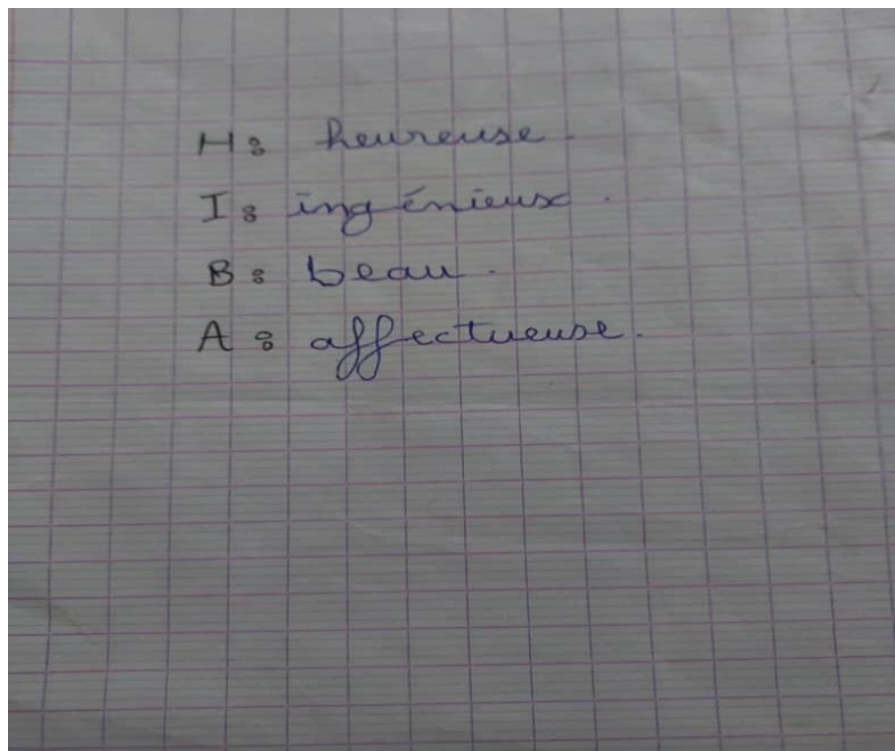 H: heureuse.
I: ingénieux.
B: beau.
A: affectueuse.